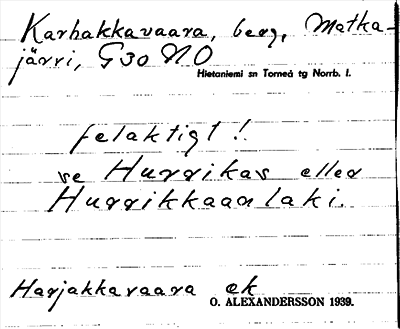 Karhakkavaara, berg, Matka-
järvi, G30 NO
Hietaniemi sn Torneå tg Norrb. l.
felaktigt!
se Hurrikas eller
Hurrikkaanlaki.
Harjakkavaara ek
O. ALEXANDERSSON 1939.